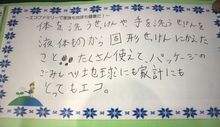 ～エコファミリーで家族も地球も健康だ！～
体を洗うせっけんや手を洗うせっけんを
液体ものから固形せけんにかえた
こと。たくさん使えて、パッケージの
ごみもへり地球にも家計にも
とてもエコ。